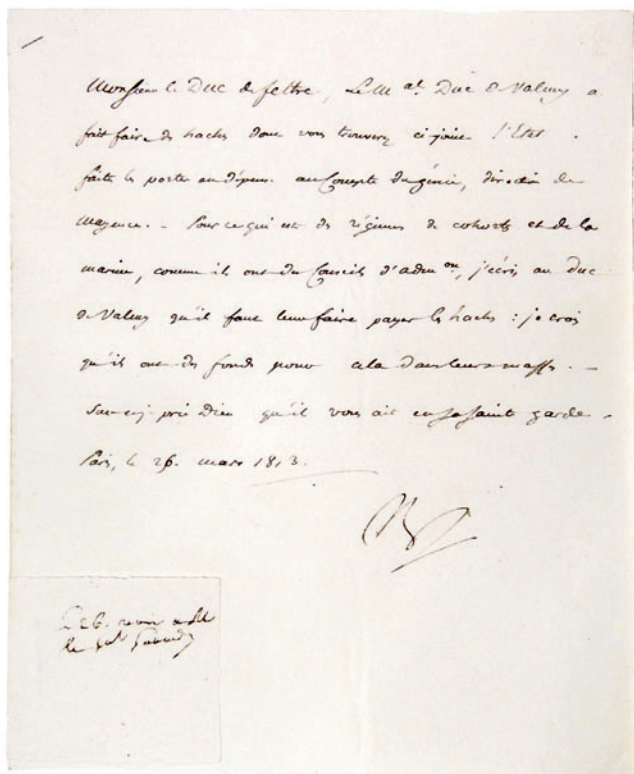 Monsieur le Duc de feltre, Le M.al Duc de Valmy a
fait faire des haches dont vous trouverez ci joint l'Etat.
faites les porter en dépense au Compte du génie, direction de
Mayence. - Pour ce qui est des régimens de cohortes et de la
marine, comme ils ont des Conseils d'adm.on, j'écris au duc
de Valmy qu'il faut leur faire payer les haches : je crois
qu'ils ont des fonds pour cela dans leurs masses. -
Sur ce, je prie Dieu qu'il vous ait en sa sainte garde.
Paris, le 26. mars 1813.
Le 26. a M
le